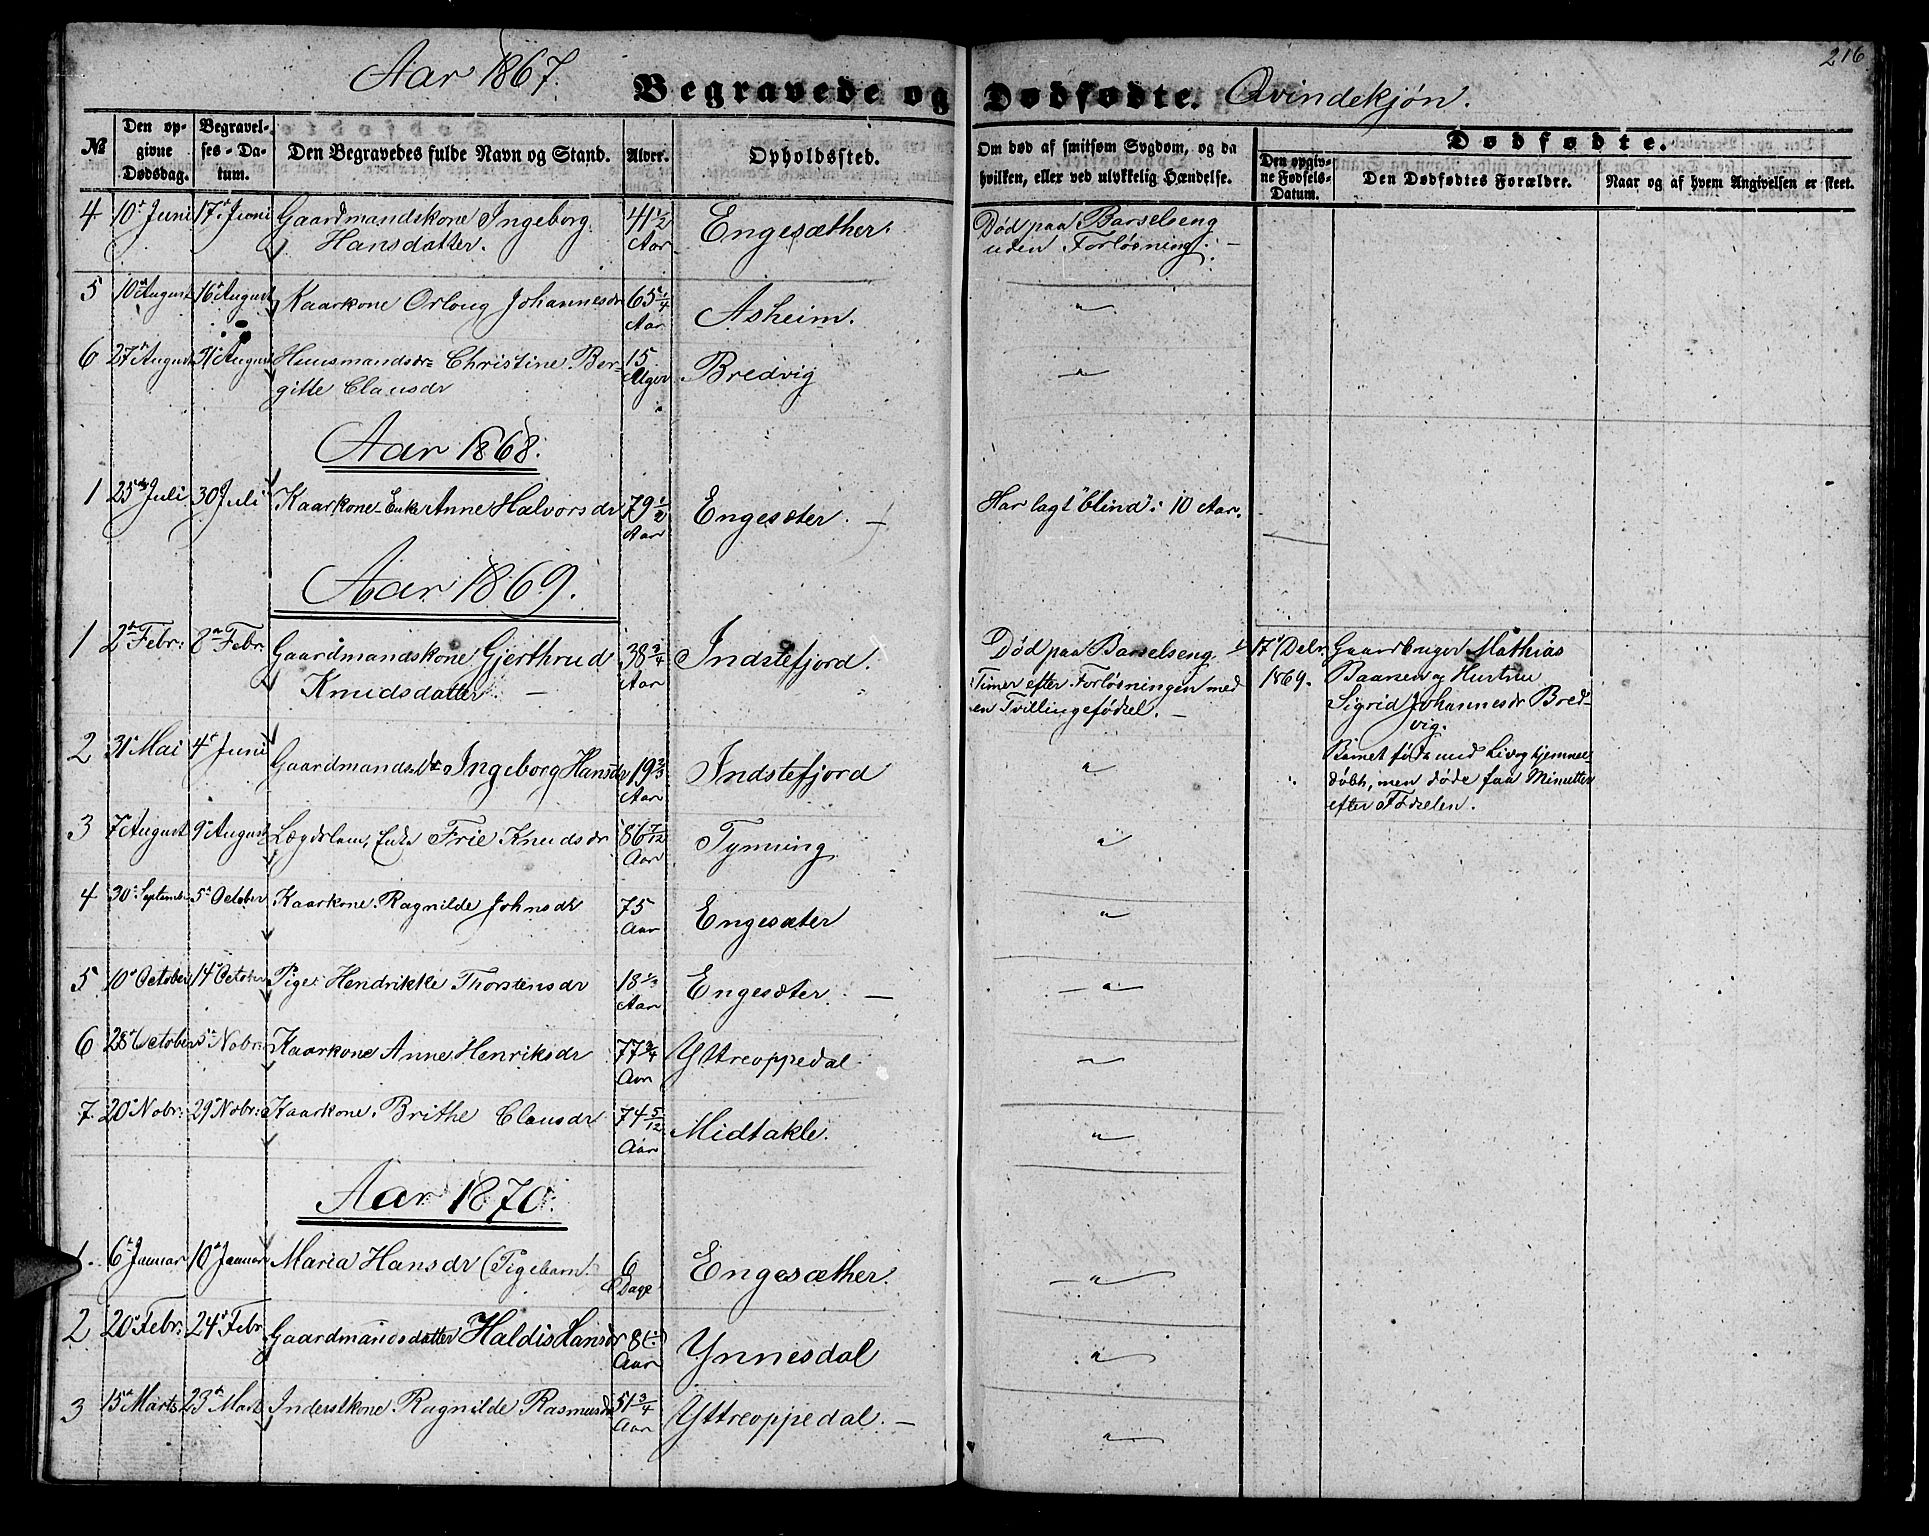 216
Aar 1867.
Begravede og Dødfødte. Qvindekjøn.
№
Den opgivne Dødsdag.
Begravelses-Datum.
Den Begravedes fulde Navn og Stand.
Alder.
Opholdssted.
Om død af smitsom Sygdom, og da
hvilken, eller ved ulykkelig Hændelse.
Dødfødte.
Den opgivne Fødsels-Datum.
Den Dødfødtes Forældre.
Naar og af hvem Angivelsen er skeet.
4 10de Juni 17de Juni Gaardmandskone Ingeborg 41 1/2 Engesæther. Død paa Barselseng
Hansdatter. Aar uden Forløsning. —
5 10de August 16de August Kaarkone Orloug Johannesdr 65 1/4 Asheim. "
Aar
6 27de August 31te August Huusmandsdr Christine Ber- 15 Bredvig "
gitte Clausdr Uger
Aar 1868.
1 25de Juli 30 Juli Kaarkone Enke Anne Halvorsdr 79 1/2 Engesæter. — Har lagt "blind" i 10 Aar.
Aar
Aar 1869.
1 2den Febr: 8de Febr: Gaardmandskone Gjerthrud 38 3/4 Indstefjord. Død paa Barselseng
Knudsdatter. — Aar Timer efter Forløsningen med
en Tvillingefødsel. —
17de Debr
1869.
Gaardbruger Mathias
Baarsen og Hustru
Sigrid Johannesdr Bred-
vig.
Barnet født med Liv og hjemme-
døbt, men døde faa Minutter
efter Fødselen.
2 31te Mai 4de Juni Gaardmandsdtr Ingeborg Hansdr 19 2/3 Indstefjord "
Aar
3 7de August 9de August Lægdslem, Enke Frie Knudsdr 86 7/12 Tynning "
Aar
4 30te September 5te October Kaarkone Ragnilde Johnsdr 75 Engesæter "
Aar
5 10de October 14de October Pige: Hendrikke Thorstensdr 18 1/2 Engesæter. — — " —
Aar
6 28de October 5te Nobr: Kaarkone Anne Henriksdr 77 3/4 Yttreoppedal "
Aar
7. 20de Nobr: 29de Nobr: Kaarkone. Brithe Clausdr 74 5/12 Midtakle. "
Aar
Aar 1870.
1. 6te Januar 10de Januar Maria Hansdr (Pigebarn) 6 Engesæther. — " —
Dage
2 20de Febr: 24de Febr Gaardmandsdatter Haldis Hansdr 8 Ynnesdal "
Aar
3 15de Marts 23de Mart Inderstkone Ragnilde Rasmusdr 51 3/4 Yttreoppedal. — "
Aar